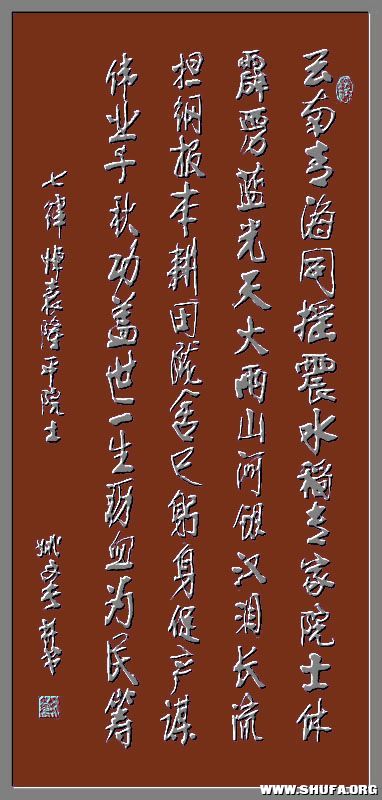 云南青海同摇震水稻专家院士休
霹雳蓝光天大雨山河银汉泪长流
担纲报本耕田陇舍己躬身促产谋
伟业千秋功盖世一生沥血为民筹
七律 悼袁隆平院士
并书
WWW.SHUFA.ORG